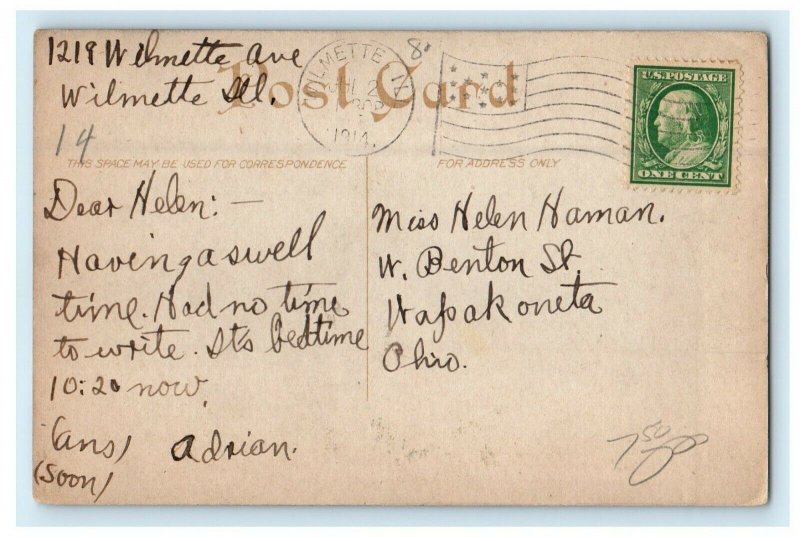 1219 Wilmette Ave
Wilmette Ill.
Post Card
WILMETTE
1914
8
14
U.S. POSTAGE
ONE CENT
THIS SPACE MAY BE USED FOR CORRESPONDENCE
FOR ADDRESS ONLY
Dear Helen:—
Having a swell
time. Had no time
to write. It's bedtime
10:20 now.
(ans) Adrian.
(Soon)
Miss Helen Haman.
W. Benton St.
Wapakoneta
Ohio.
7 50